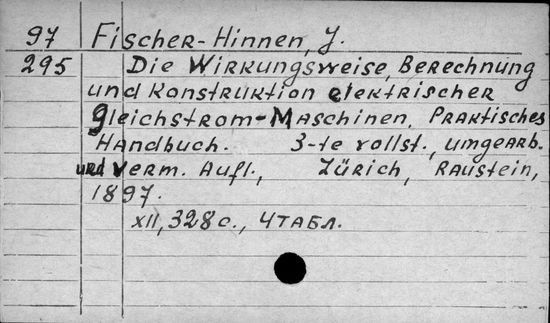 97 Fischer-Hinnen, J.
295 Die Wirkungsweise, Berechnung
und Konstruktion elektrischer
Gleichstrom-Maschinen. Praktisches
Handbuch. 3-te vollst., umgearb.
und verm. Aufl., Zürich, Raustein,
1897.
XII, 328 с., 4 табл.